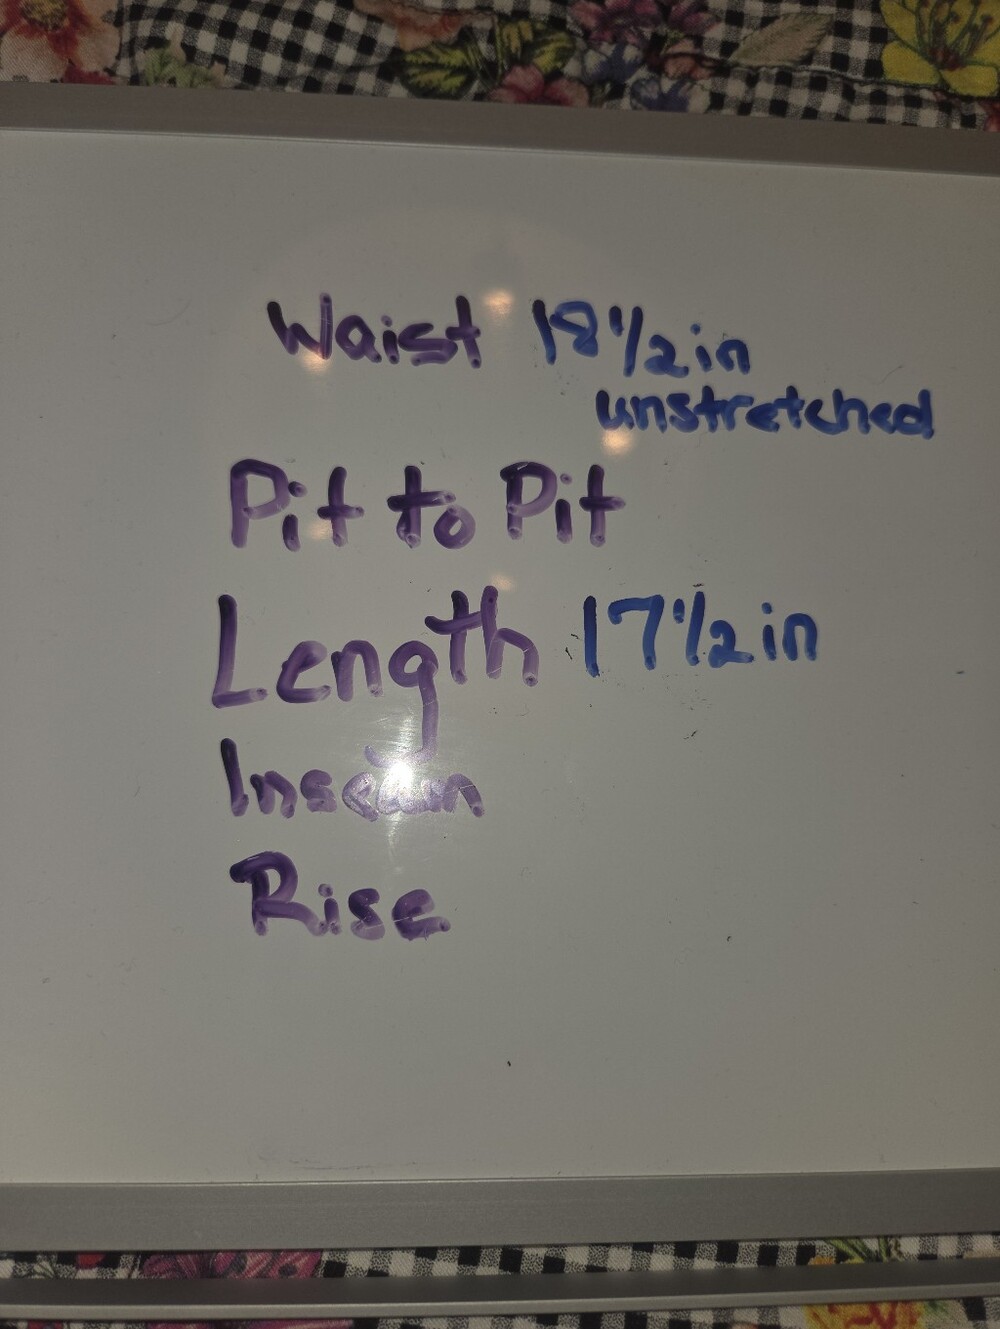 Waist 18 1/2 in
unstretched
Pit to Pit
Length 17 1/2 in
Inseam
Rise